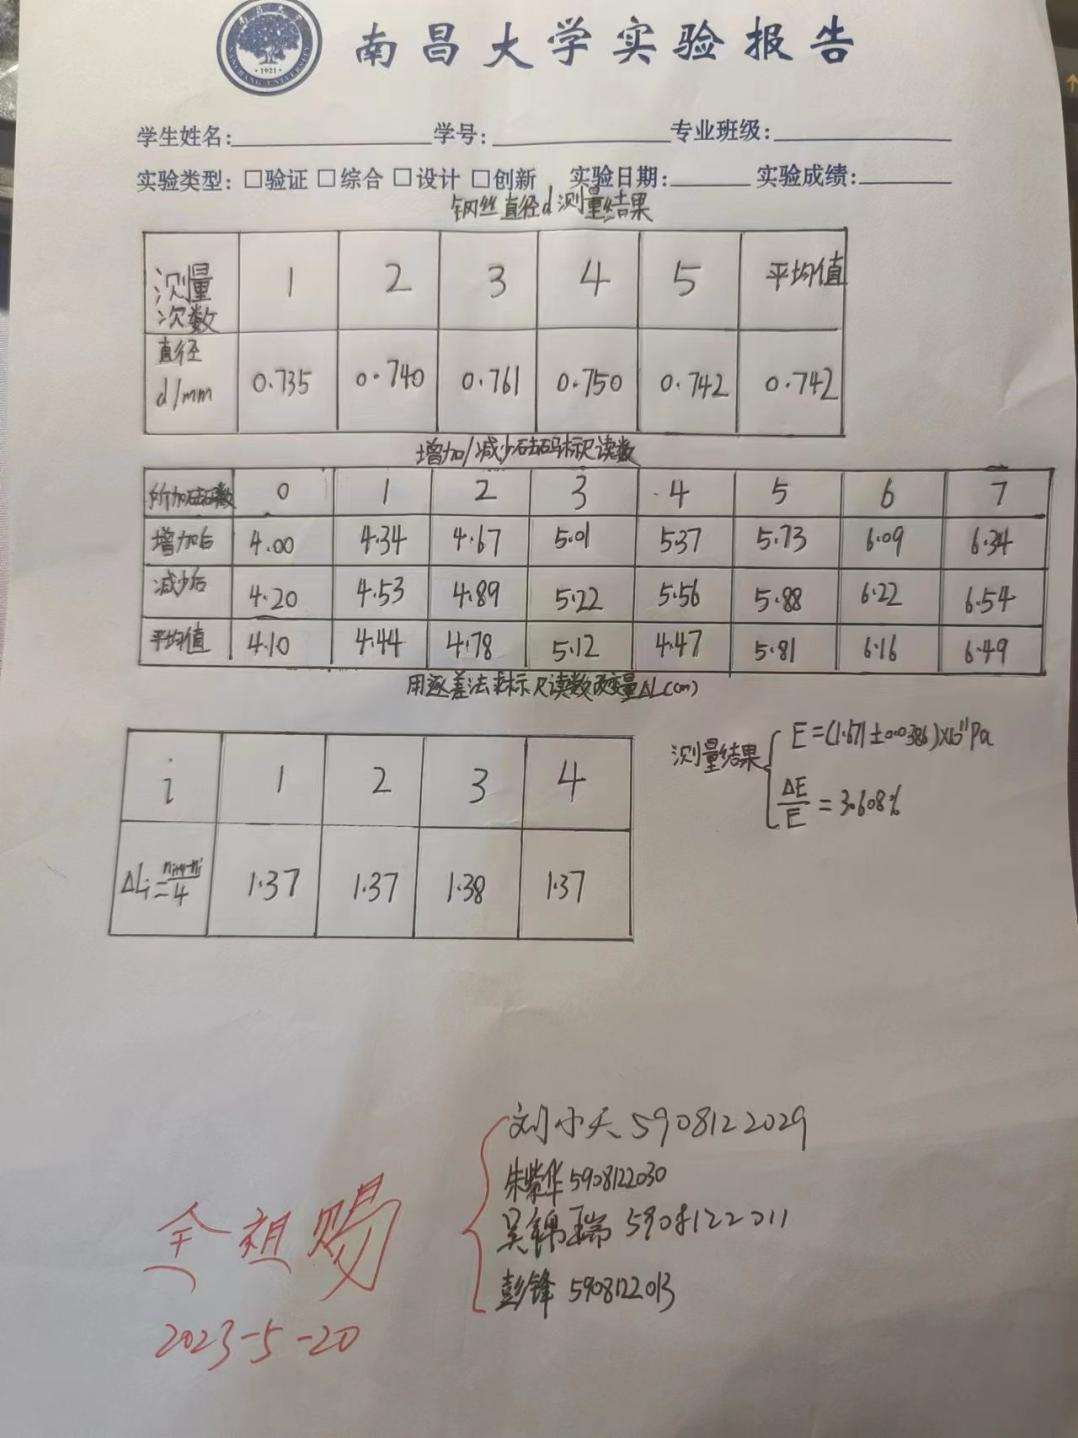 南昌大学
NANCHANG UNIVERSITY
·1921·
南昌大学实验报告
学生姓名: 学号: 专业班级:
实验类型: □验证 □综合 □设计 □创新 实验日期: 实验成绩:
钢丝直径d测量结果
测量次数 1 2 3 4 5 平均值
直径d/mm 0.735 0.740 0.761 0.750 0.742 0.742
增加/减少砝码标尺读数
所加砝码数 0 1 2 3 4 5 6 7
增加后 4.00 4.34 4.67 5.01 5.37 5.73 6.09 6.34
减少后 4.20 4.53 4.89 5.22 5.56 5.88 6.22 6.54
平均值 4.10 4.44 4.78 5.12 4.47 5.81 6.16 6.49
用逐差法求标尺读数改变量ΔL(cm)
i 1 2 3 4
ΔLi= /4 1.37 1.37 1.38 1.37
测量结果 E=(1.671±0.0386)×10¹¹Pa
ΔE/E=3.608%
刘小天 5908122029
朱紫华 5908122030
吴锦瑞 5908122011
彭锋 5908122013
全祖赐
2023-5-20